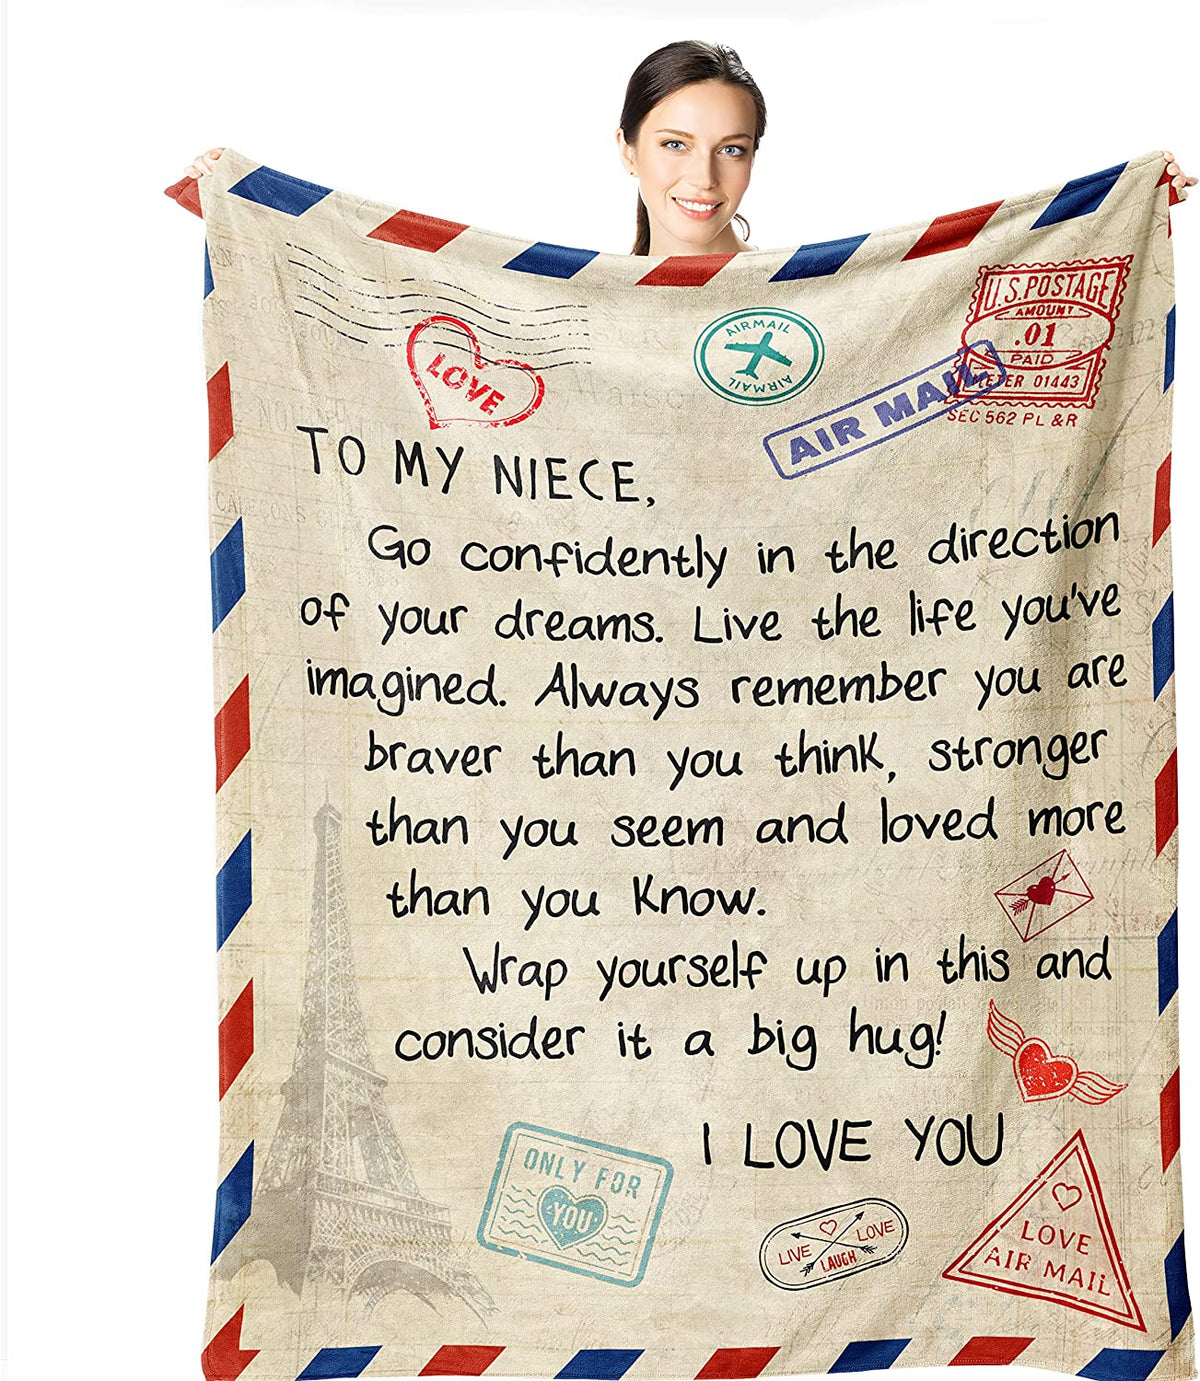 LOVE
AIRMAIL
AIRMAIL
U.S.POSTAGE
AMOUNT
.01
PAID
METER 01443
SEC 562 PL & R
AIR MAIL
TO MY NIECE,
Go confidently in the direction
of your dreams. Live the life you've
imagined. Always remember you are
braver than you think, stronger
than you seem and loved more
than you know.
Wrap yourself up in this and
consider it a big hug!
I LOVE YOU
ONLY FOR
YOU
LIVE
LAUGH
LOVE
LOVE
AIR MAIL